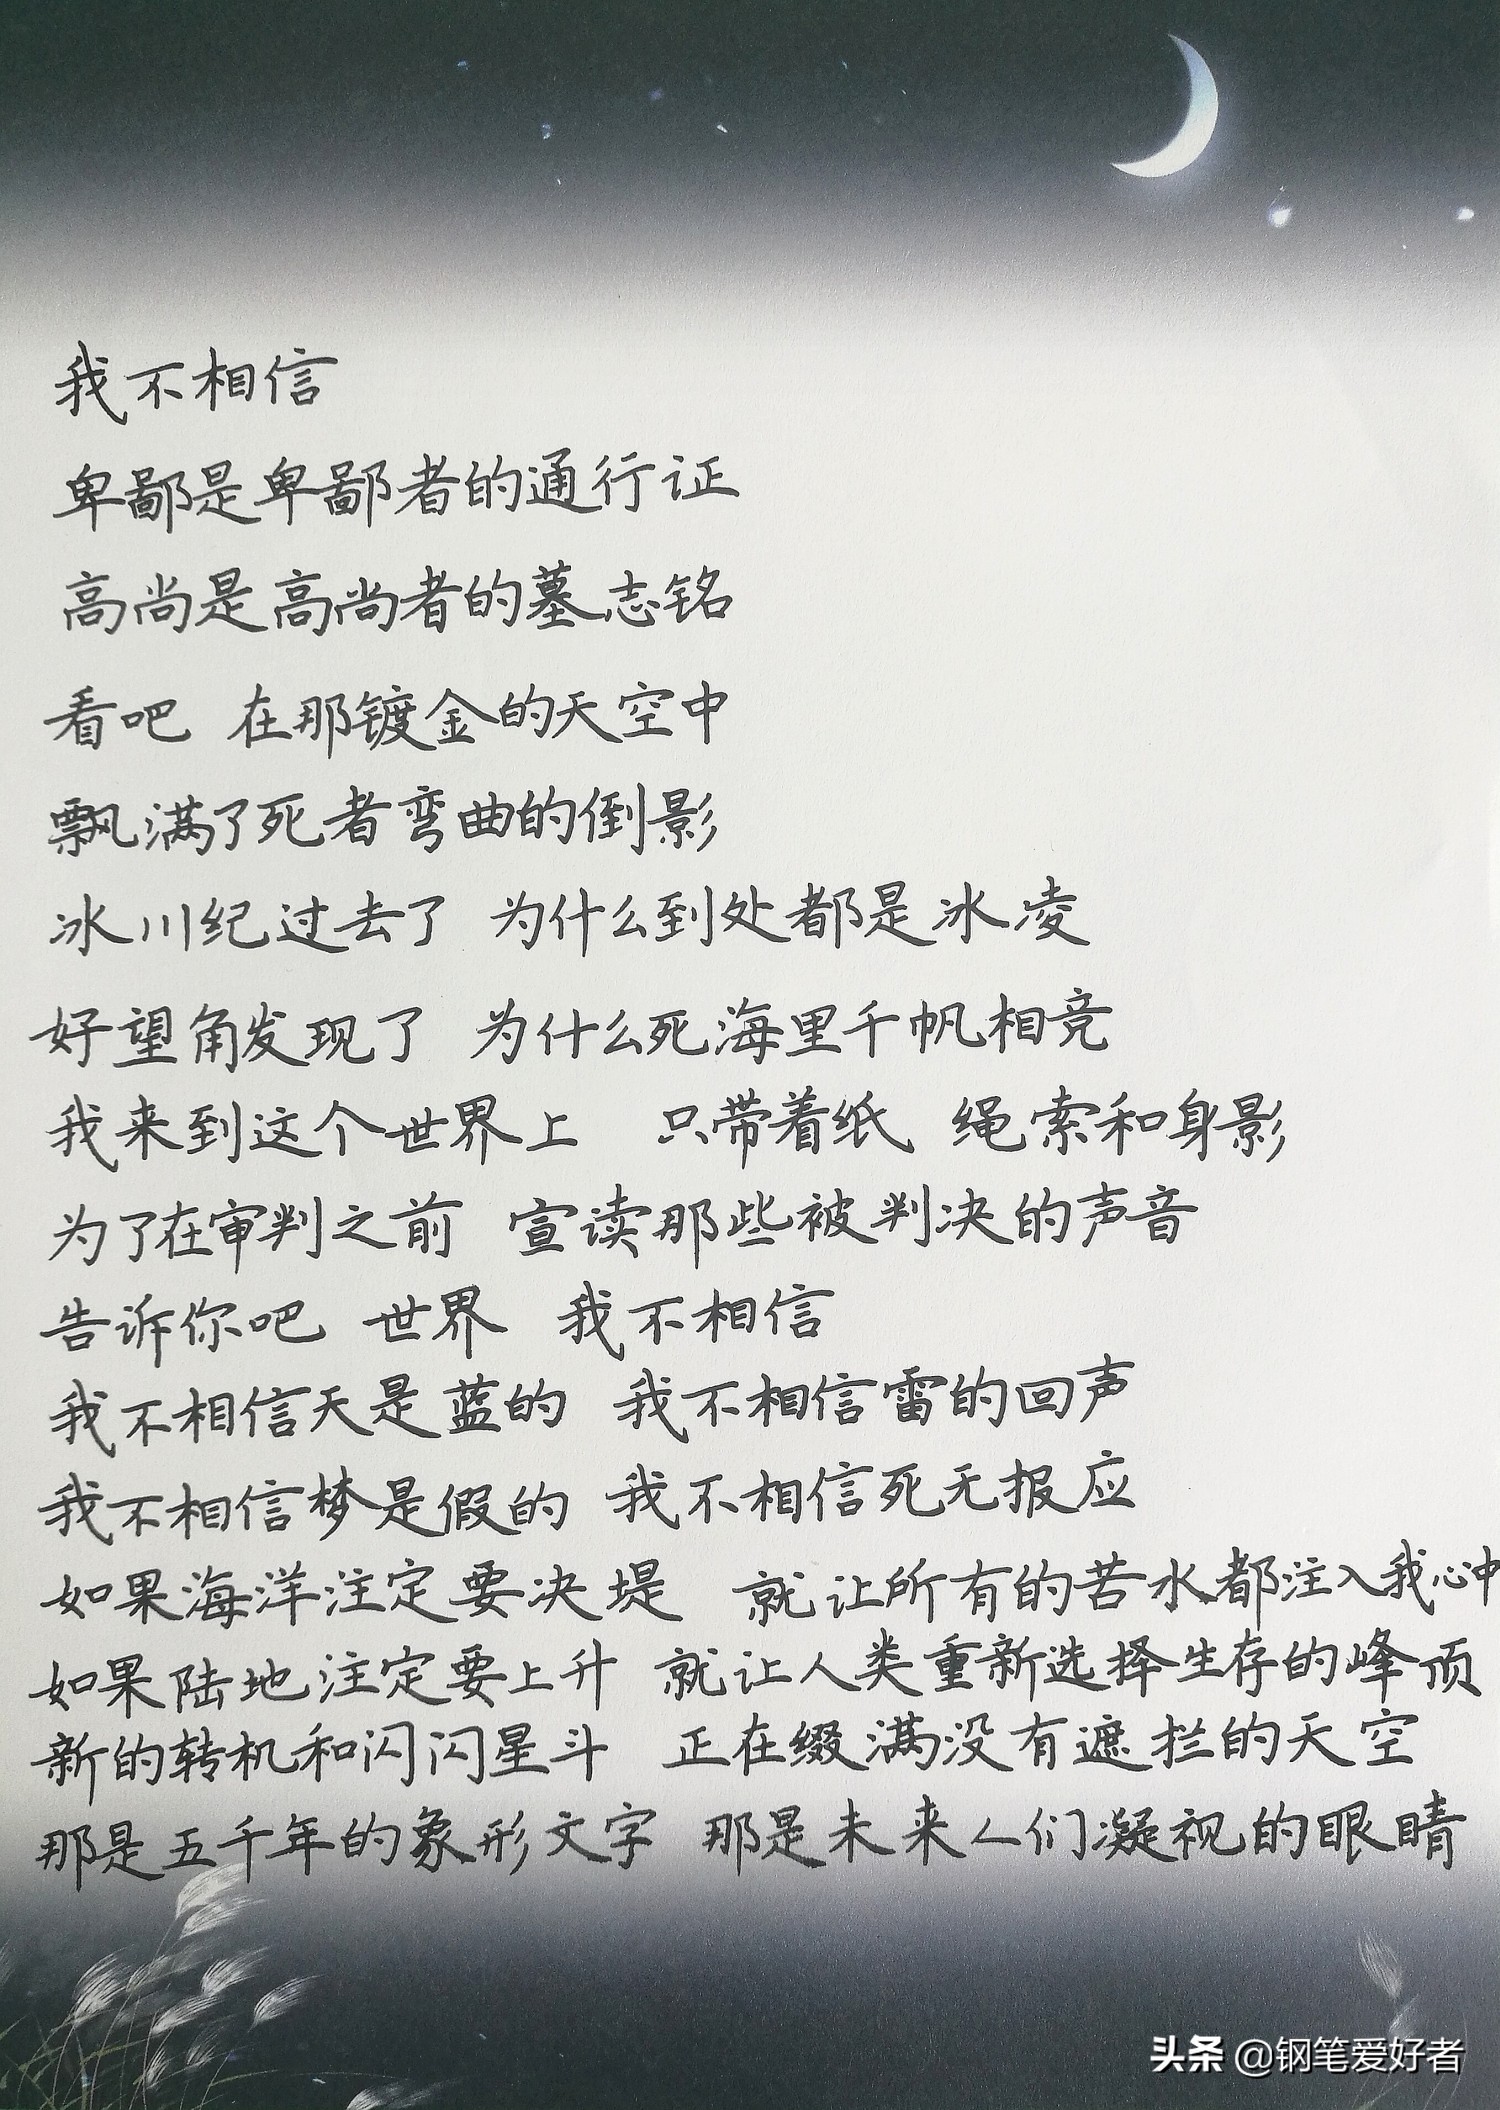 我不相信
卑鄙是卑鄙者的通行证
高尚是高尚者的墓志铭
看吧 在那镀金的天空中
飘满了死者弯曲的倒影
冰川纪过去了 为什么到处都是冰凌
好望角发现了 为什么死海里千帆相竞
我来到这个世界上 只带着纸 绳索和身影
为了在审判之前 宣读那些被判决的声音
告诉你吧 世界 我不相信
我不相信天是蓝的 我不相信雷的回声
我不相信梦是假的 我不相信死无报应
如果海洋注定要决堤 就让所有的苦水都注入我心中
如果陆地注定要上升 就让人类重新选择生存的峰顶
新的转机和闪闪星斗 正在缀满没有遮拦的天空
那是五千年的象形文字 那是未来人们凝视的眼睛
头条 @钢笔爱好者